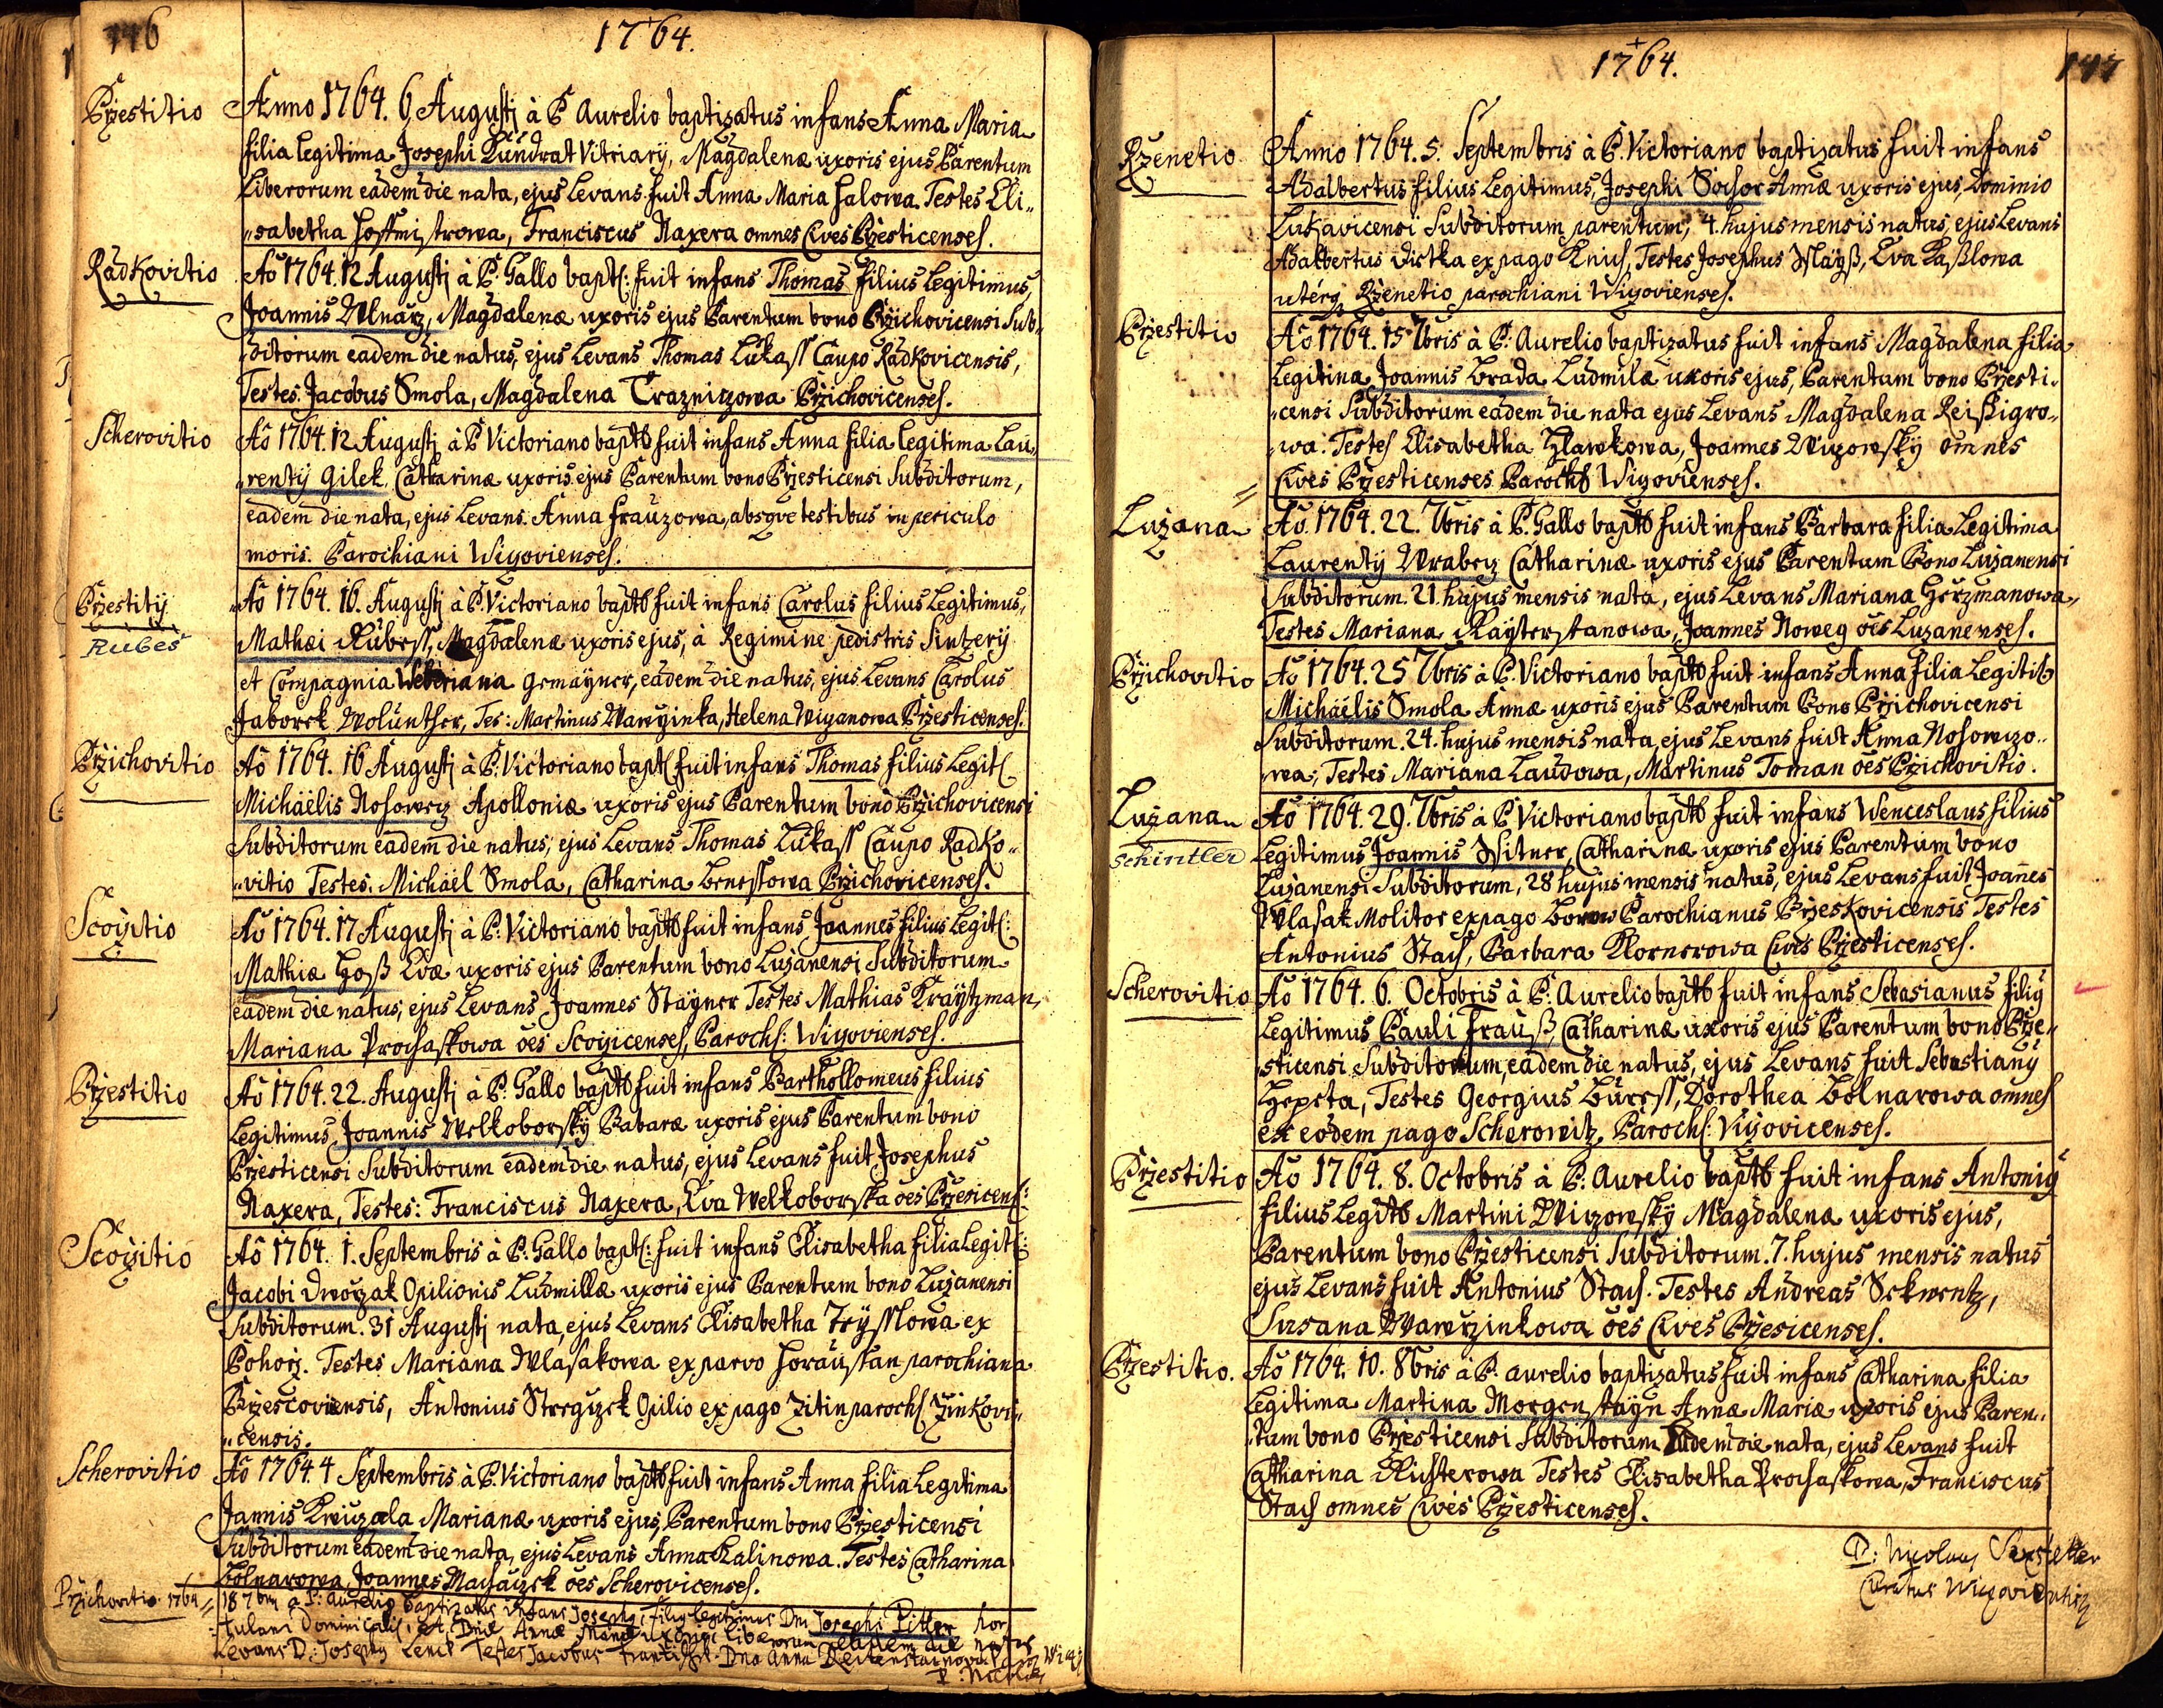 146
1764.
Przestitio
Anno 1764. 6 Augusti à P Aurelio baptizatus infans Anna Maria
filia legitima Josephi Kundrat Vitriarÿ, Magdalenæ uxoris ejus Parentum
Liberorum eadem die nata, ejus Levans fuit Anna Maria Halowa. Testes Eli„
„sabetha Hoffmistrowa, Franciscus Naxera omnes Cives Przesticenses.
Radkovitio
Aō 1764. 12 Augusti à P. Gallo bapt: fuit infans Thomas filius Legitimus,
Joannis Mlnarz, Magdalenæ uxoris ejus Parentum bono Przichovicensi Sub„
„ditorum eadem die natus, ejus Levans Thomas Lukass Caupo Radkovicensis,
Testes Jacobus Smola, Magdalena Traznizowa Przichovicenses.
Scherovitio
Aō 1764. 12 Augusti à P. Victoriano baptb fuit infans Anna filia legitima Lau„
„rentÿ Gilek, Catharinæ uxoris ejus Parentum bono Przesticensi Subditorum,
eadem die nata, ejus Levans Anna Frauzowa, absqve testibus in periculo
moris. Parochiani Wizovienses.
Przestitÿ
Rubeš
Aō 1764. 16. Augusti à P. Victoriano baptb fuit infans Carolus filius Legitimus,
Mathæi Rubess, Magdalenæ uxoris ejus, à Regimine pedistris Sintzerÿ
et Compagnia Weberiana Gemayner, eadem die natus, ejus Levans Carolus
Jaborek Wolunther, Tes: Martinus Wawrzinka, Helena Wizanowa Przesticenses.
Przichovitio
Aō 1764. 16 Augusti à P. Victoriano bapt fuit infans Thomas filius Legit
Michaëlis Nosowecz Apolloniæ uxoris ejus Parentum bono Przichovicensi
Subditorum eadem die natus, ejus Levans Thomas Lukass Caupo Radko„
„vitio Testes. Michaël Smola, Catharina Benessowa Przichovicenses.
Scozitio
Aō 1764. 17 Augusti à P. Victoriano baptb fuit infans Joannes filius Legit:
Mathiæ Hoß Evæ uxoris ejus Parentum bono Luzanensi Subditorum
eadem die natus, ejus Levans Joannes Stayner Testes Mathias Kraytzman,
Mariana Prochaskowa oēs Scozicenses, Paroch: Wizovienses.
Przestitio
Aō 1764. 22. Augusti à P. Gallo baptb fuit infans Parthollomeus filius
Legitimus Joannis Welkoborskÿ Babaræ uxoris ejus Parentum bono
Przesticensi Subditorum eadem die natus, ejus Levans fuit Josephus
Naxera, Testes: Franciscus Naxera, Eva Welkoborska oes Przesicens:
Scozitio
Aō 1764. 1. Septembris à P. Gallo bapt: fuit infans Elisabetha filia Legit:
Jacobi Dworzak Opilionis Ludmillæ uxoris ejus Parentum bono Luzanensi
Subditorum. 31 Augusti nata, ejus Levans Elisabetha Tryssowa ex
Pohorz. Testes Mariana Wlasakowa ex parvo Horaustan parochiana
Przescoviensis, Antonius Strguzek Opilio ex pago Zitin paroch Zinkovi„
„censis.
Scherovitio
Aō 1764. 4 Septembris à P. Victoriano baptb fuit infans Anna filia Legitima
Jannis Kreuzala Marianæ uxoris ejus, Parentum bono Przesticensi
Subditorum eadem die nata, ejus Levans Anna Kalinowa. Testes Catharina
Bolnarowa, Joannes Machaczek oes Scherovicenses.
Przichovitio 1764
18 7bris à P: Aurelio baptizatus infans Josephus filius legitimus Dni Josephi Pitler hor
tulani Dominicalis, et Dnæ Annæ Mariæ uxoris Liberorum eadem die natus
Levans D: Josephus Lenck Testes Jacobus Frantishk Dna Anna
P: Nicolaus
1764.
147
Rzenetio
Anno 1764. 5. Septembris à P. Victoriano baptizatus fuit infans
Adalbertus filius Legitimus, Josephi Sochor Annæ uxoris ejus, Dominio
Lukavicensi Subditorum parentum, 4. hujus mensis natus, ejus Levans
Adalbertus Dirtka ex pago Knih, Testes Josephus Mayß, Eva Kaßlowa
uterq Rzenetio parochiani Wizovienses.
Przestitio
Aō 1764. 15 7bris à P. Aurelio baptizatus fuit infans Magdalena filia
Legitina Joannis Brada Ludmilæ uxoris ejus, Parentum bono Przesti„
„censi Subditorum eadem die nata ejus Levans Magdalena Reißigro„
„wa. Testes Elisabetha Hlawkowa, Joannes Wizowskÿ omnes
Cives Przesticenses Parochb Wizovienses.
Luzana
Aō. 1764. 22. 7bris à P. Gallo baptb fuit infans Barbara filia Legitima
Laurentÿ Wrabez Catharinæ uxoris ejus Parentum Bono Luzanensi
Subditorum. 21. hujus mensis nata, ejus Levans Mariana Herzmanowa,
Testes Mariana Kayserstanowa, Joannes Noweg oēs Luzanenses.
Przichovitio
Aō 1764. 25 7bris à P. Victoriano baptb fuit infans Anna filia Legitib
Michaëlis Smola Annæ uxoris ejus Parentum Bono Przichovicensi
Subditorum. 24. hujus mensis nata ejus Levans fuit Anna Nosowzo„
„wa, Testes Mariana Laudowa, Martinus Toman oēs Przichovitio.
Luzana
Schintler
Aō 1764. 29. 7bris à P. Victoriano baptb fuit infans Wenceslaus filius
Legitimus Joannis Ssitner, Catharinæ uxoris ejus Parentum bono
Luzanensi Subditorum, 28 hujus mensis natus, ejus Levans fuit Joanes
Wlasak Molitor ex pago Borow Parochianus Przeskovicensis Testes
Antonius Stach, Barbara Kornerowa Cives Przesticenses.
Scherovitio
Aō 1764. 6. Octobris à P. Aurelio baptb fuit infans Sebasianus filiÿ
Legitimus Pauli Frauß Catharinæ uxoris ejus Parentum bono Prze„
sticensi Subditorum, eadem die natus, ejus Levans fuit Sebastianÿ
Hepeta, Testes Georgius Buress, Dorothea Bolnarowa omnes
ex eodem pago Scherowitz, Paroch: Vizovicenses.
Przestitio
Aō 1764. 8. Octobris à P. Aurelio baptb fuit infans Antoniÿ
filius Legitb Martini Wizowskÿ Magdalenæ uxoris ejus,
Parentum bono Przesticensi Subditorum. 7. hujus mensis natus
ejus Levans fuit Antonius Stach. Testes Andreas Sekwentz,
Susana Wawrzinkowa oēs Cives Przesicenses.
Przestitio.
Aō 1764. 10. 8bris à P. Aurelio baptizatus fuit infans Catharina filia
Legitima Martina Morgenstayn Annæ Mariæ uxoris ejus Paren„
„tum bono Przesticensi Subditorum Eadem die nata, ejus Levans fuit
Catharina Richterowa Testes Elisabetha Prochaskowa, Franciscus
Stach omnes Cives Przesticenses.
P: Nicolaus
Curatus Wizoviensis